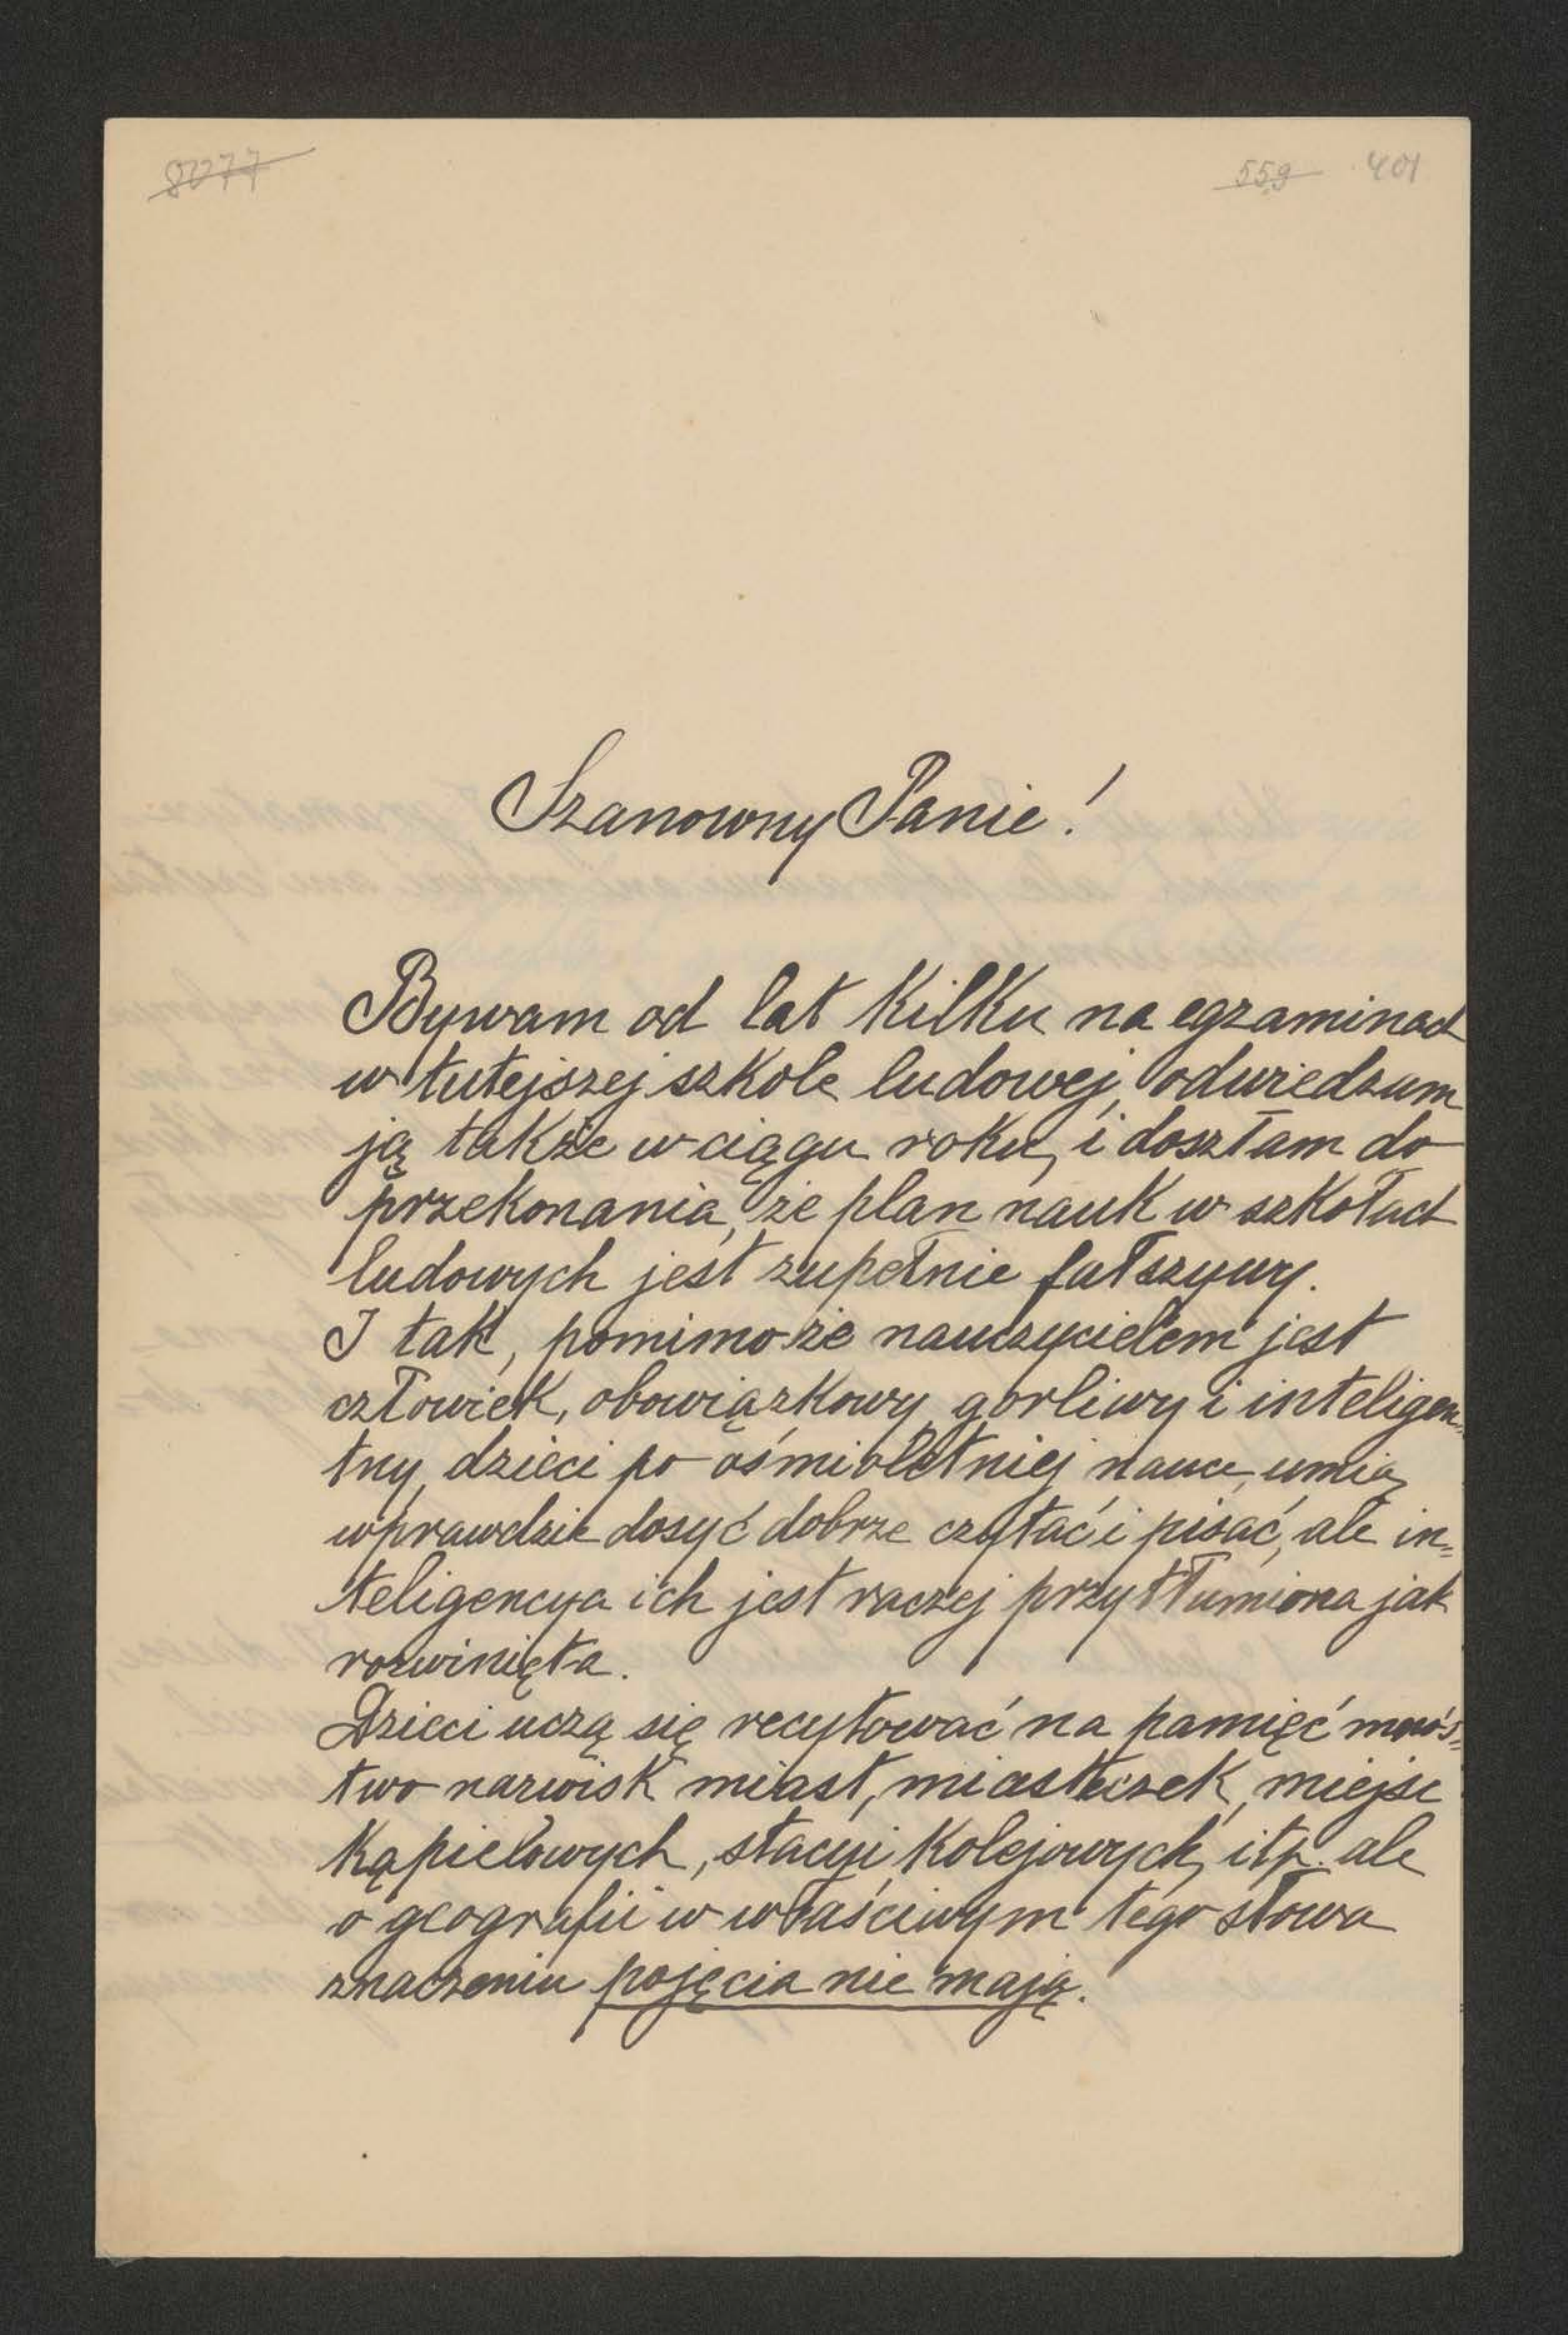 8077
559 401
Szanowny Panie!
Bywam od lat kilku na egzaminach
w tutejszej szkole ludowej, odwiedzam
ją także w ciągu roku, i doszłam do
przekonania, że plan nauk w szkołach
ludowych jest zupełnie fałszywy.
I tak, pomimo że nauczycielem jest
człowiek, obowiązkowy, gorliwy i inteligen=
tny, dzieci po ośmioletniej nauce, umią
wprawdzie dosyć dobrze czytać i pisać, ale in=
teligencya ich jest raczej przytłumiona jak
rozwinięta.
Dzieci uczą się recytować na pamięć mnós=
two nazwisk miast, miasteczek, miejsc
kąpielowych, stacyi kolejowych, itp. ale
o geografii w właściwym tego słowa
znaczeniu pojęcia nie mają.